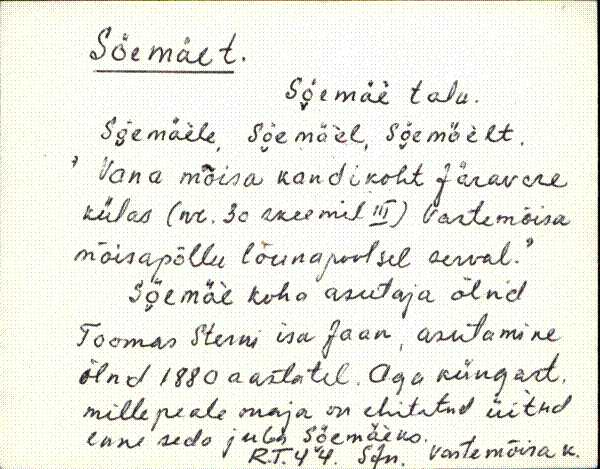 Sõemäel.
Sõemäe talu.
Sõemäèle, Sõemäèl, Sõemäèlt.
"Vana mõisa kandikoht Järavere
külas (nr. 30 skeemil III) Vastemõisa
mõisapõllu lõunapoolsel serval."
Sõemäe koha asutaja õlnd
Toomas Sterni isa Jaan, asutamine
õlnd 1880 aastatel. Aga küngast,
millepeale maja on ehitatud üitud
enne seda juba Sõemäeks.
R.T. 44. Sjn. Vastemõisa k.